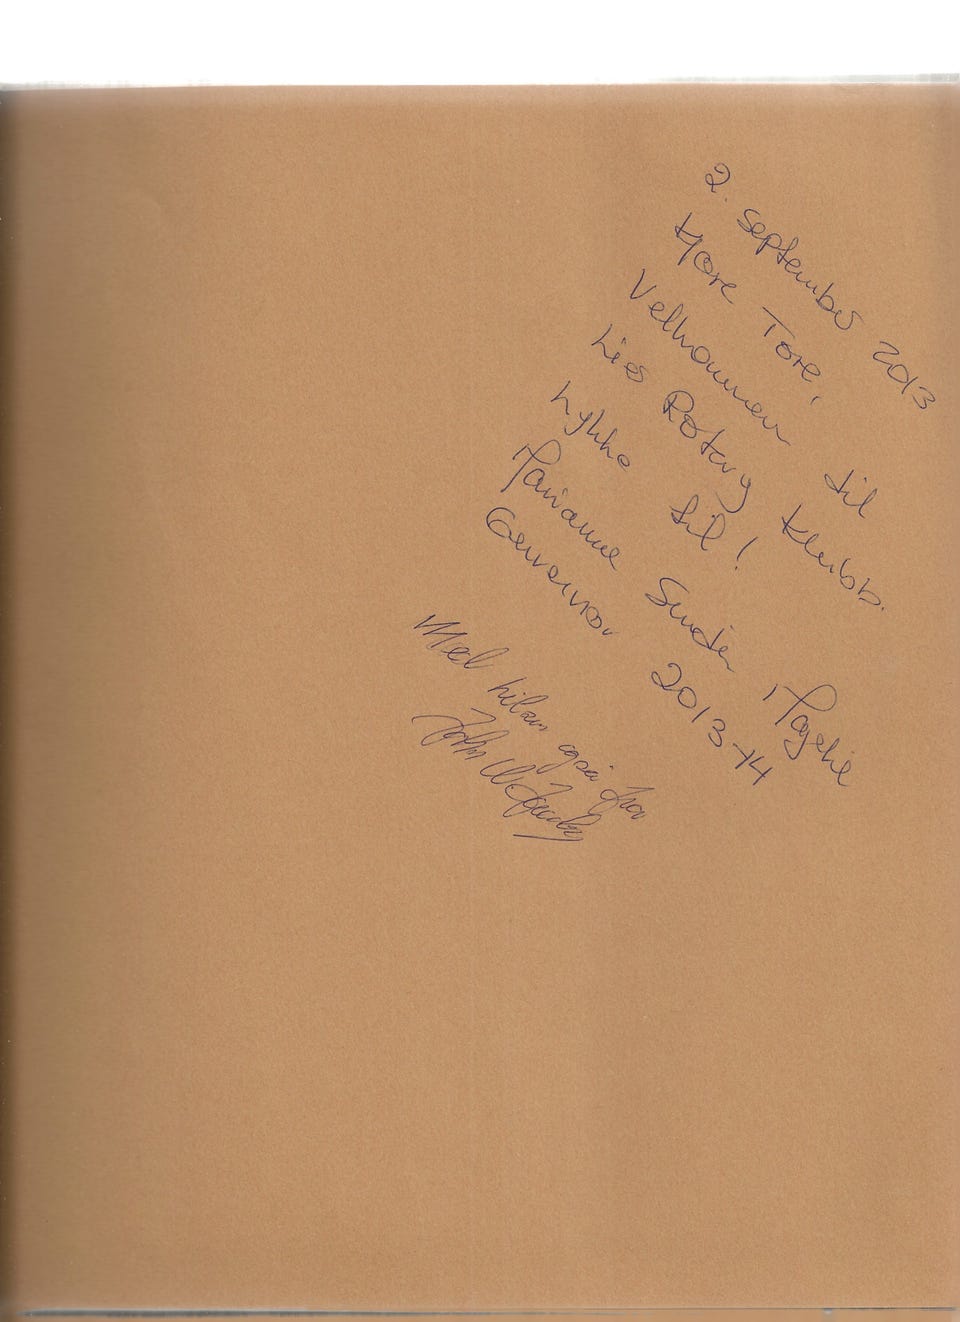 2. September 2013
Kjære Tore,
Velkommen til
Lies Rotary Klubb.
Lykke til!
Marianne
Guvernør 2013-14
Med hilsen også fra
John